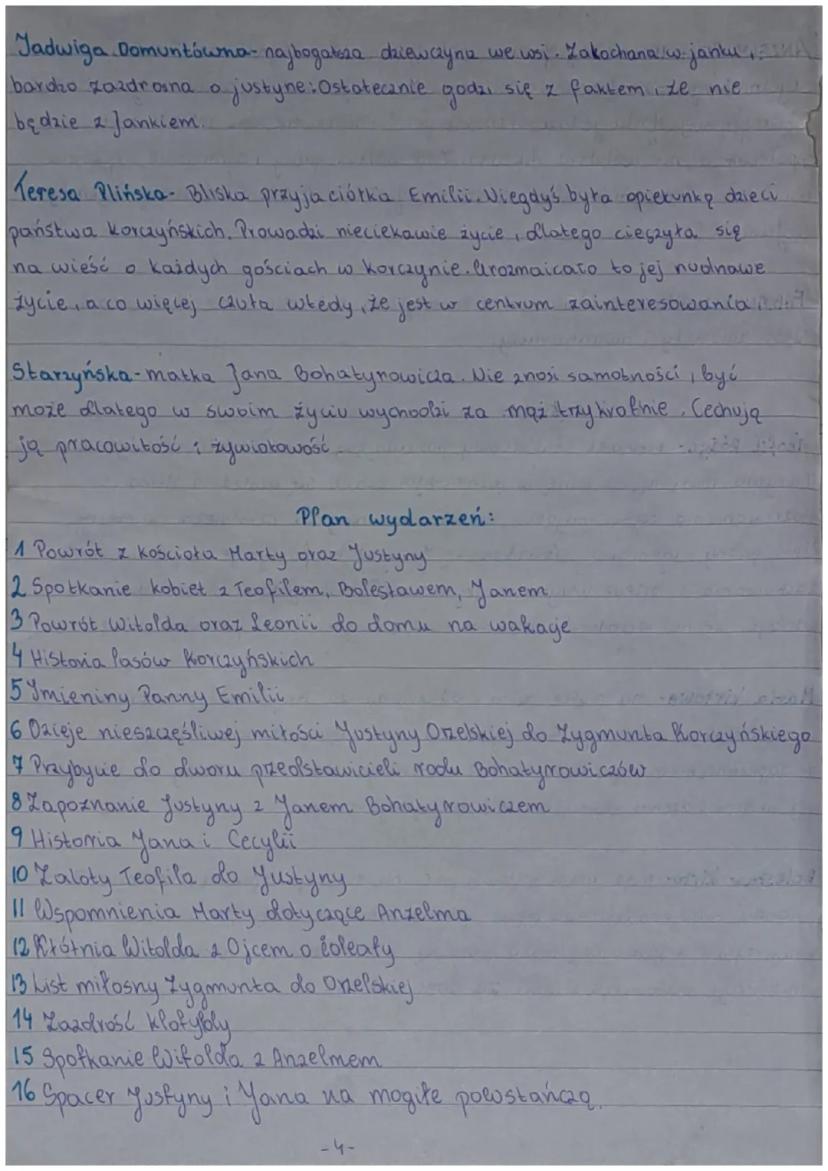 Jadwiga Domuntówna - najbogatsza dziewczyna we wsi. Zakochana w janku,
bardzo zazdrosna o justynę. Ostatecznie godzi się z faktem, że nie
będzie z Jankiem.
Teresa Plińska - Bliska przyjaciółka Emilii. Niegdyś była opiekunką dzieci
państwa Korczyńskich. Prowadzi nieciekawie życie, dlatego cieszyła się
na wieść o każdych gościach w Korczynie. Urozmaicało to jej nudnawe
życie, a co więcej czuła wtedy, że jest w centrum zainteresowania.
Starzyńska - matka Jana Bohatyrowicza. Nie znosi samotności, być
może dlatego w swoim życiu wychodzi za mąż trzykrotnie. Cechują
ją pracowitość i żywiołowość.
Plan wydarzeń:
1 Powrót z kościoła Marty oraz Justyny
2 Spotkanie kobiet z Teofilem, Bolesławem, Janem
3 Powrót Witolda oraz Leonii do domu na wakacje
4 Historia lasów Korczyńskich
5 Imieniny Panny Emilii
6 Dzieje nieszczęśliwej miłości Justyny Orzelskiej do Zygmunta Korczyńskiego
7 Przybycie do dworu przedstawicieli rodu Bohatyrowiczów
8 Zapoznanie Justyny z Janem Bohatyrowiczem
9 Historria Jana i Cecylii
10 Zaloty Teofila do Justyny
11 Wspomnienia Marty dotyczące Anzelma
12 Kłótnia Witolda z Ojcem o ideały
13 List miłosny Zygmunta do Orzelskiej
14 Zazdrość Klotyldy
15 Spotkanie Witolda z Anzelmem
16 Spacer Justyny i Jana na mogiłę powstańczą.
-4-